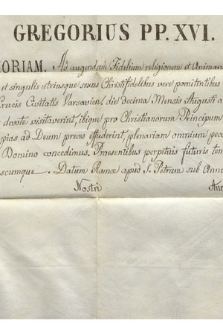 GREGORIUS PP. XVI.
ORIAM. Ad augendam Fidelium religionem et Animar
et singulis utriusque sexus Christifidelibus vere poenitentibus
Crucis Civitatis Varsaviae, die decima Mensis Augusti
devote visitaverint, ibique pro Christianorum Principum
pias ad Deum preces effuderint, plenariam omnium pec
Domino concedimus. Praesentibus perpetuis futuris tem
scumque. Datum Romae apud S. Petrum sub Annu
Nostri